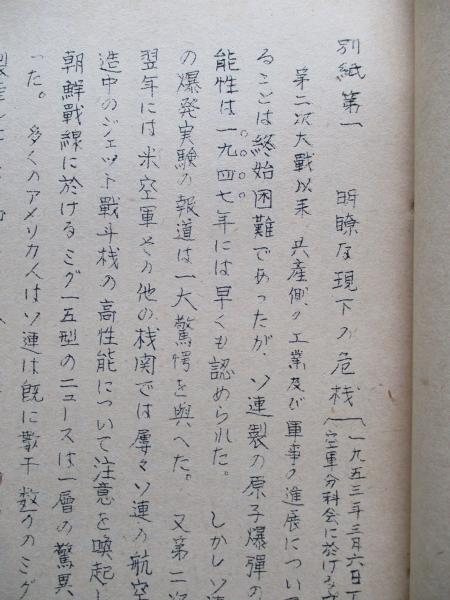 別紙第一　明瞭な現下の危桟
一九五三年三月六日
空軍分科会に於ける
第二次大戰以来　共産側の工業及び軍事の進展につい
ることは終始困難であったが、ソ連製の原子爆弾の
能性は一九四七年には早くも認められた。　しかしソ
の爆発実験の報道は一大驚愕を與へた。　又第二次
翌年には米空軍その他の桟関では屡々ソ連の航空
造中のジェット戰斗桟の高性能について注意を喚起し
朝鮮戰線に於けるミグ一五型のニュースは一層の驚異
った。　多くのアメリカ人はソ連は既に數千數ものミグ